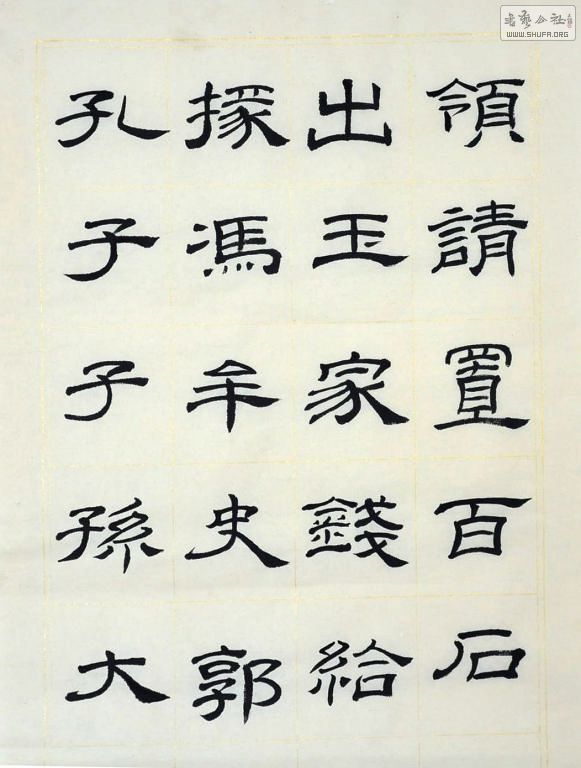 領請置百石
出玉家錢給
掾馮牟史郭
孔子子孫大
WWW.SHUFA.ORG